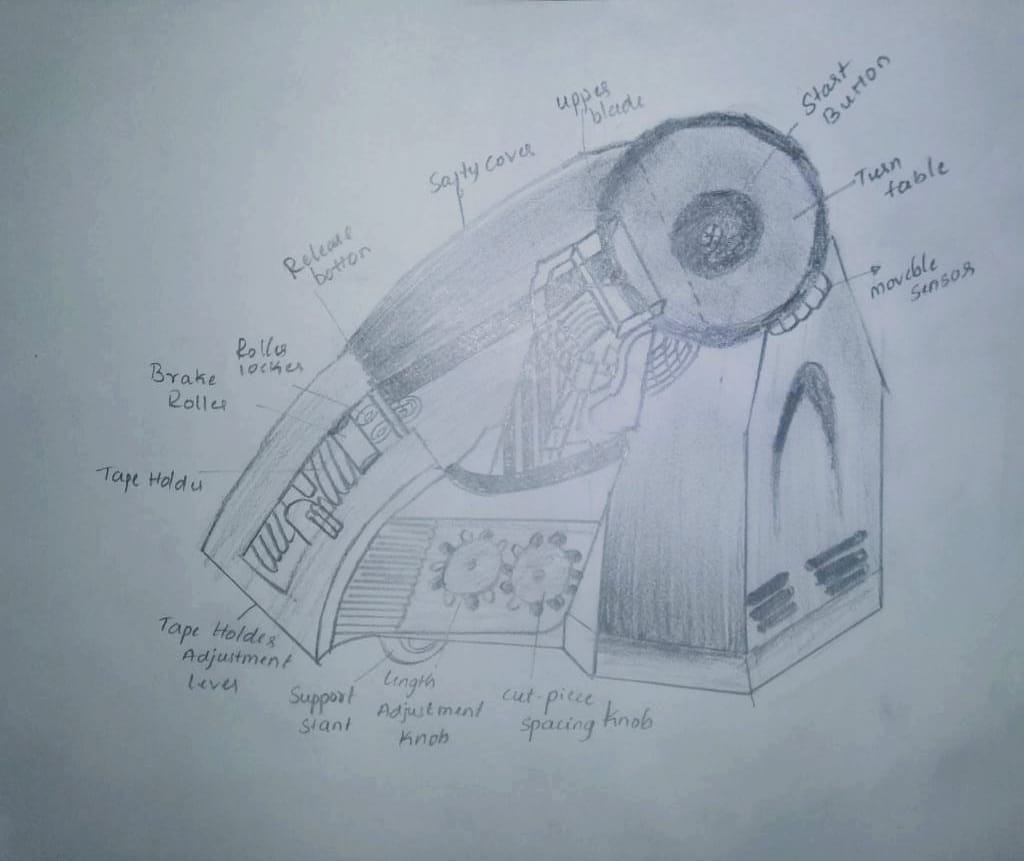 upper
blade
Start
Button
Safty cover
Turn
table
Release
botton
moveble
sensor
Roller
locker
Brake
Roller
Tape Holder
Tape Holder
Adjustment
lever
Support
Stant
length
Adjustment
Knob
cut-piece
spacing Knob